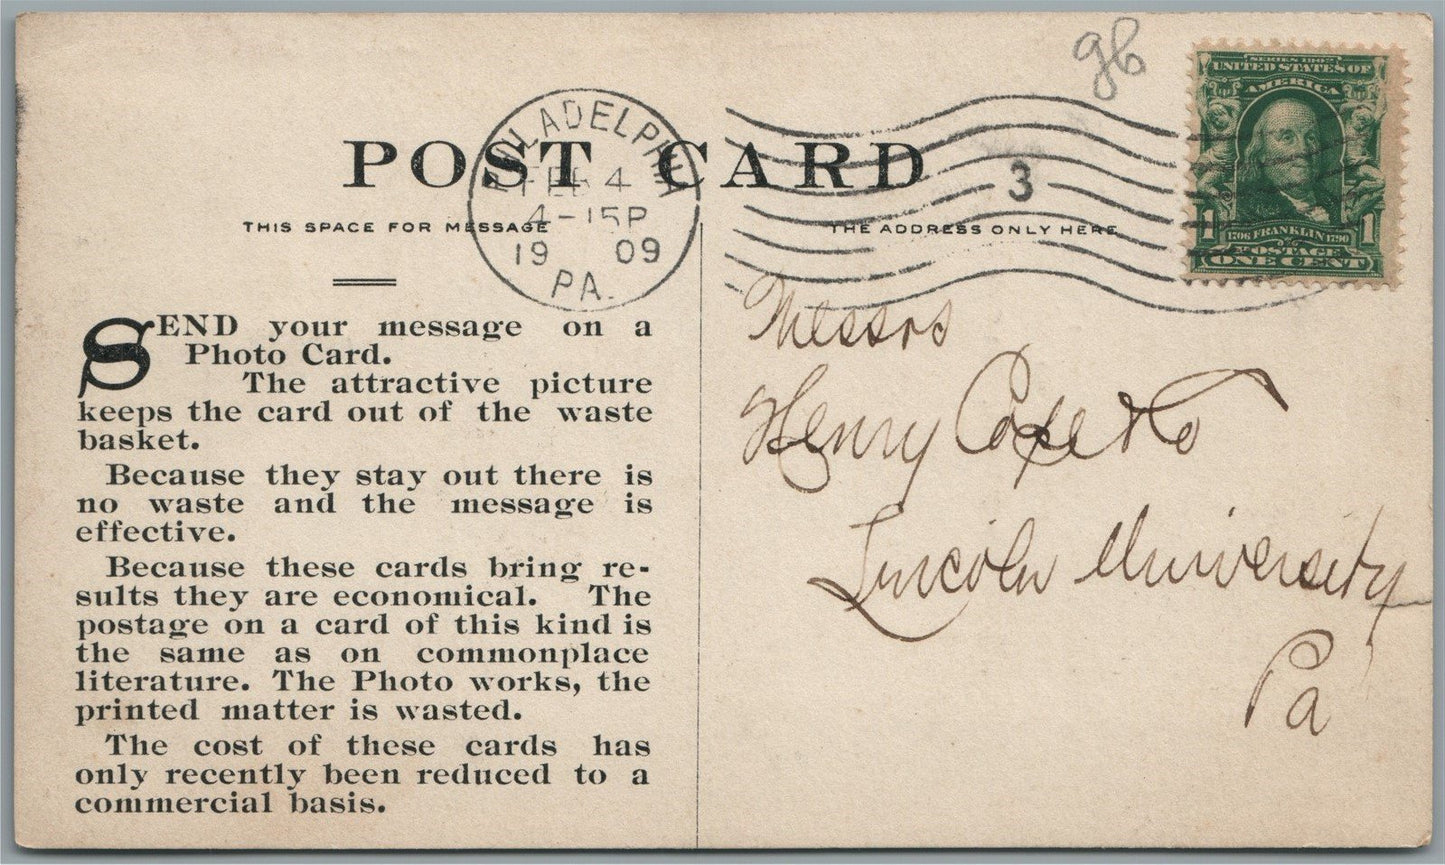 gb
SERIES 1902
UNITED STATES OF
AMERICA
1 1
1706 FRANKLIN 1790
POSTAGE
ONE CENT
PHILADELPHIA
FEB 4
4-15P
19 09
PA.
3
POST CARD
THIS SPACE FOR MESSAGE
THE ADDRESS ONLY HERE
SEND your message on a
Photo Card.
The attractive picture
keeps the card out of the waste
basket.
Because they stay out there is
no waste and the message is
effective.
Because these cards bring re-
sults they are economical. The
postage on a card of this kind is
the same as on commonplace
literature. The Photo works, the
printed matter is wasted.
The cost of these cards has
only recently been reduced to a
commercial basis.
Messrs
Henry Cope & Co
Lincoln University
Pa